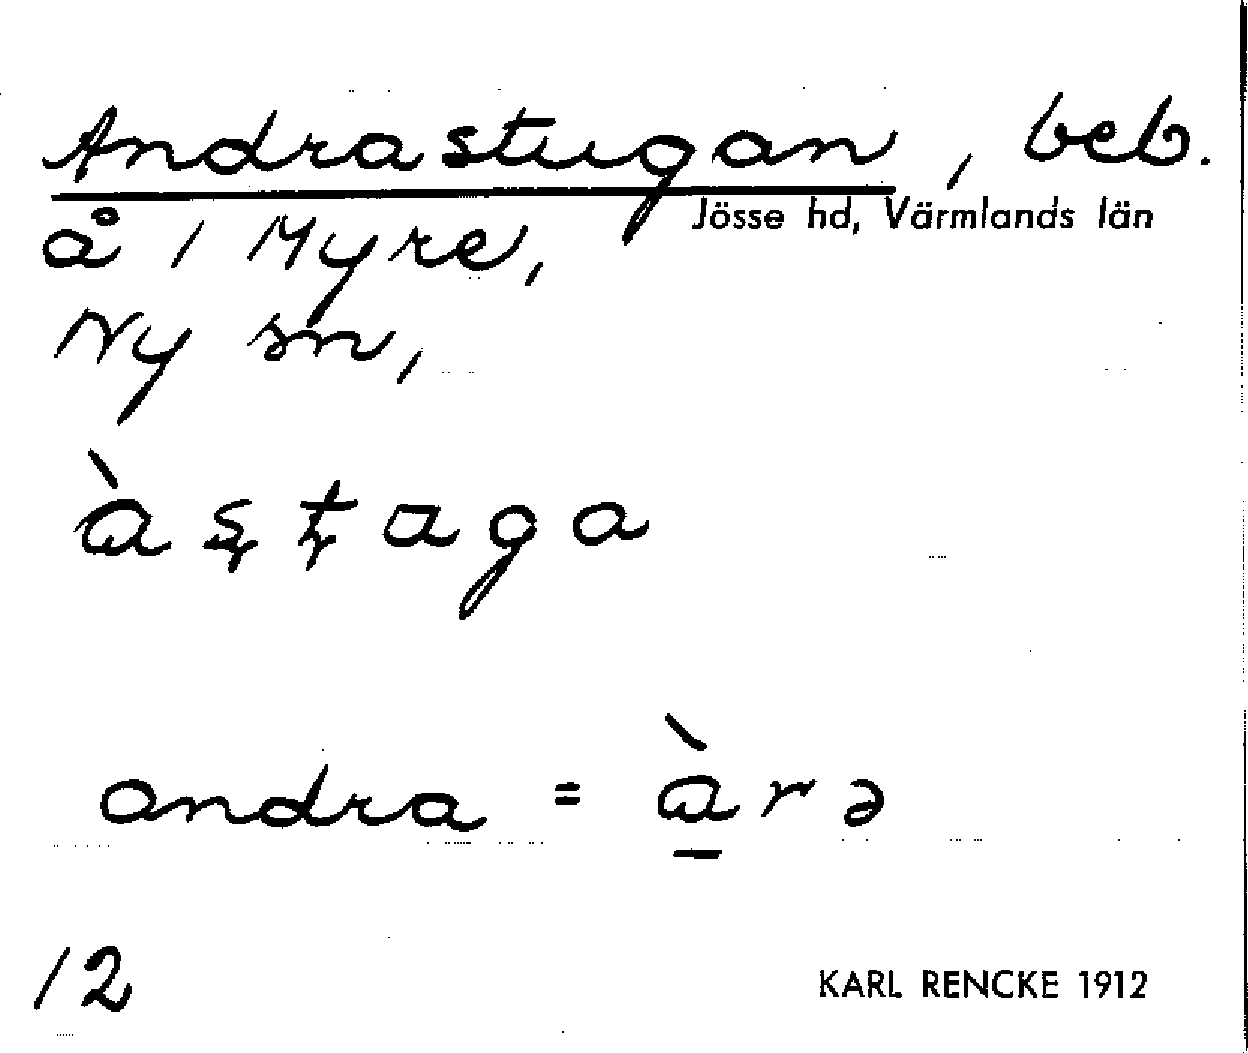 Andrastugan, beb.
Jösse hd, Värmlands län
å 1 Myre,
Ny sn,
àʂʈaga
andra = àrə
12
KARL RENCKE 1912